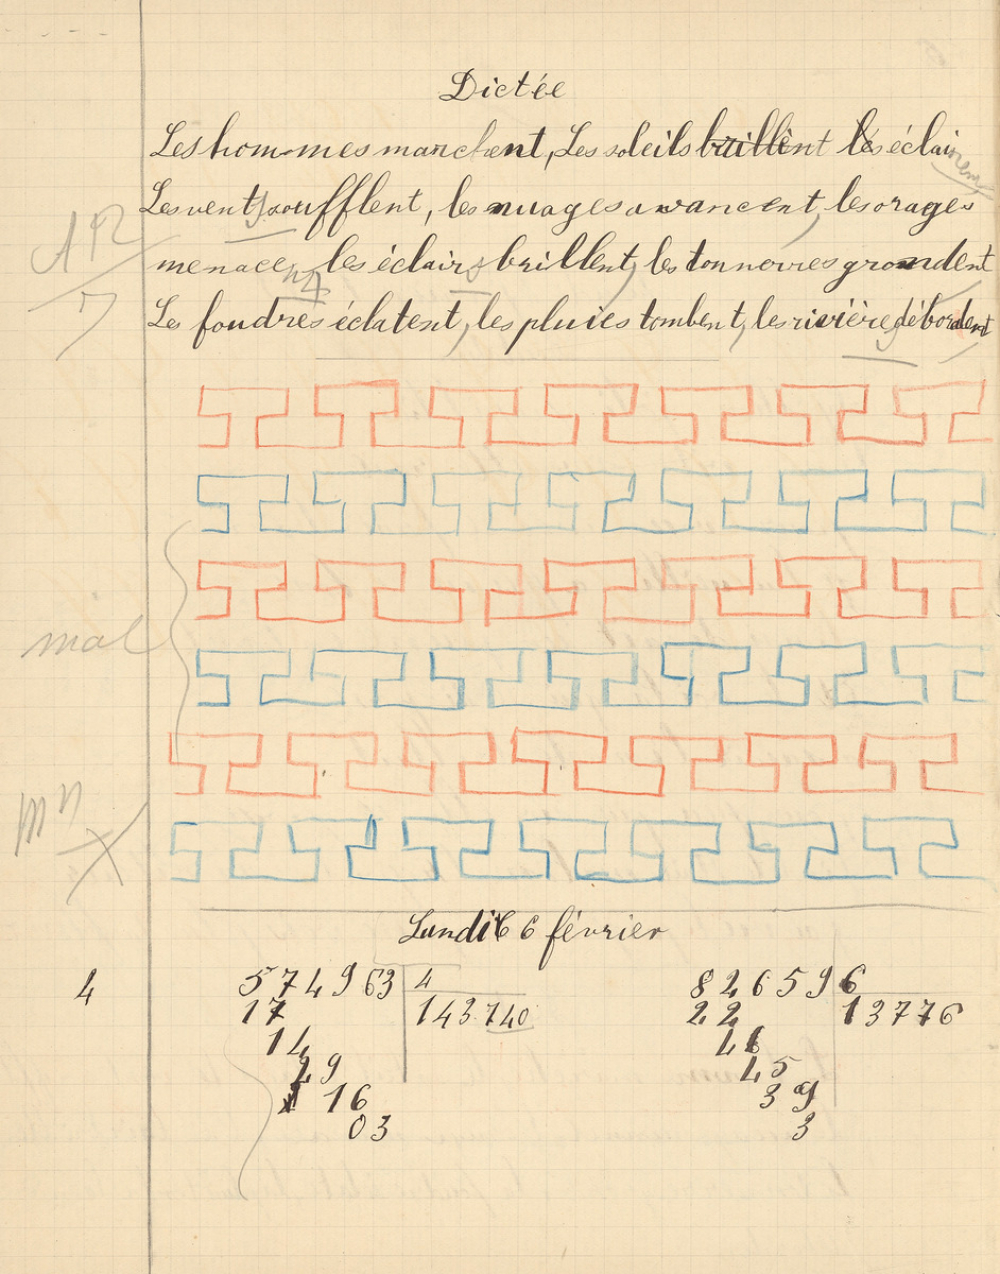 Dictée
Les hommes marchent, Les soleils brillent les éclairent
Les vents soufflent, les nuages avancent, les orages
menacent, les éclairs brillent, les tonnerres grondent
Les foudres éclatent, les pluies tombent, les rivières débordent
mal
Lundi 6 février
4 574963 4 826596 6
17 143740 22 13776
14 46
29 45
1 16 39
03 3